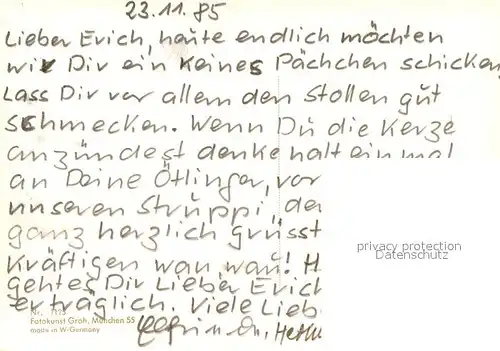 23.11.85
Lieber Erich, heute endlich möchten
wir Dir ein keines Pächchen schicken
Lass Dir vor allem den Stollen gut
schmecken. Wenn Du die Kerze
anzündest denke halt einmal
an Deine Ötlinger, vor
unseren Struppi, der
ganz herzlich grüsst
privacy protection
Datenschutz
kräftigen wau, wau! H
gehtes Dir Lieber Erich
erträglich. Viele Lieb
Nr. 1175
Fotokunst Groh, München 55
made in W-Germany